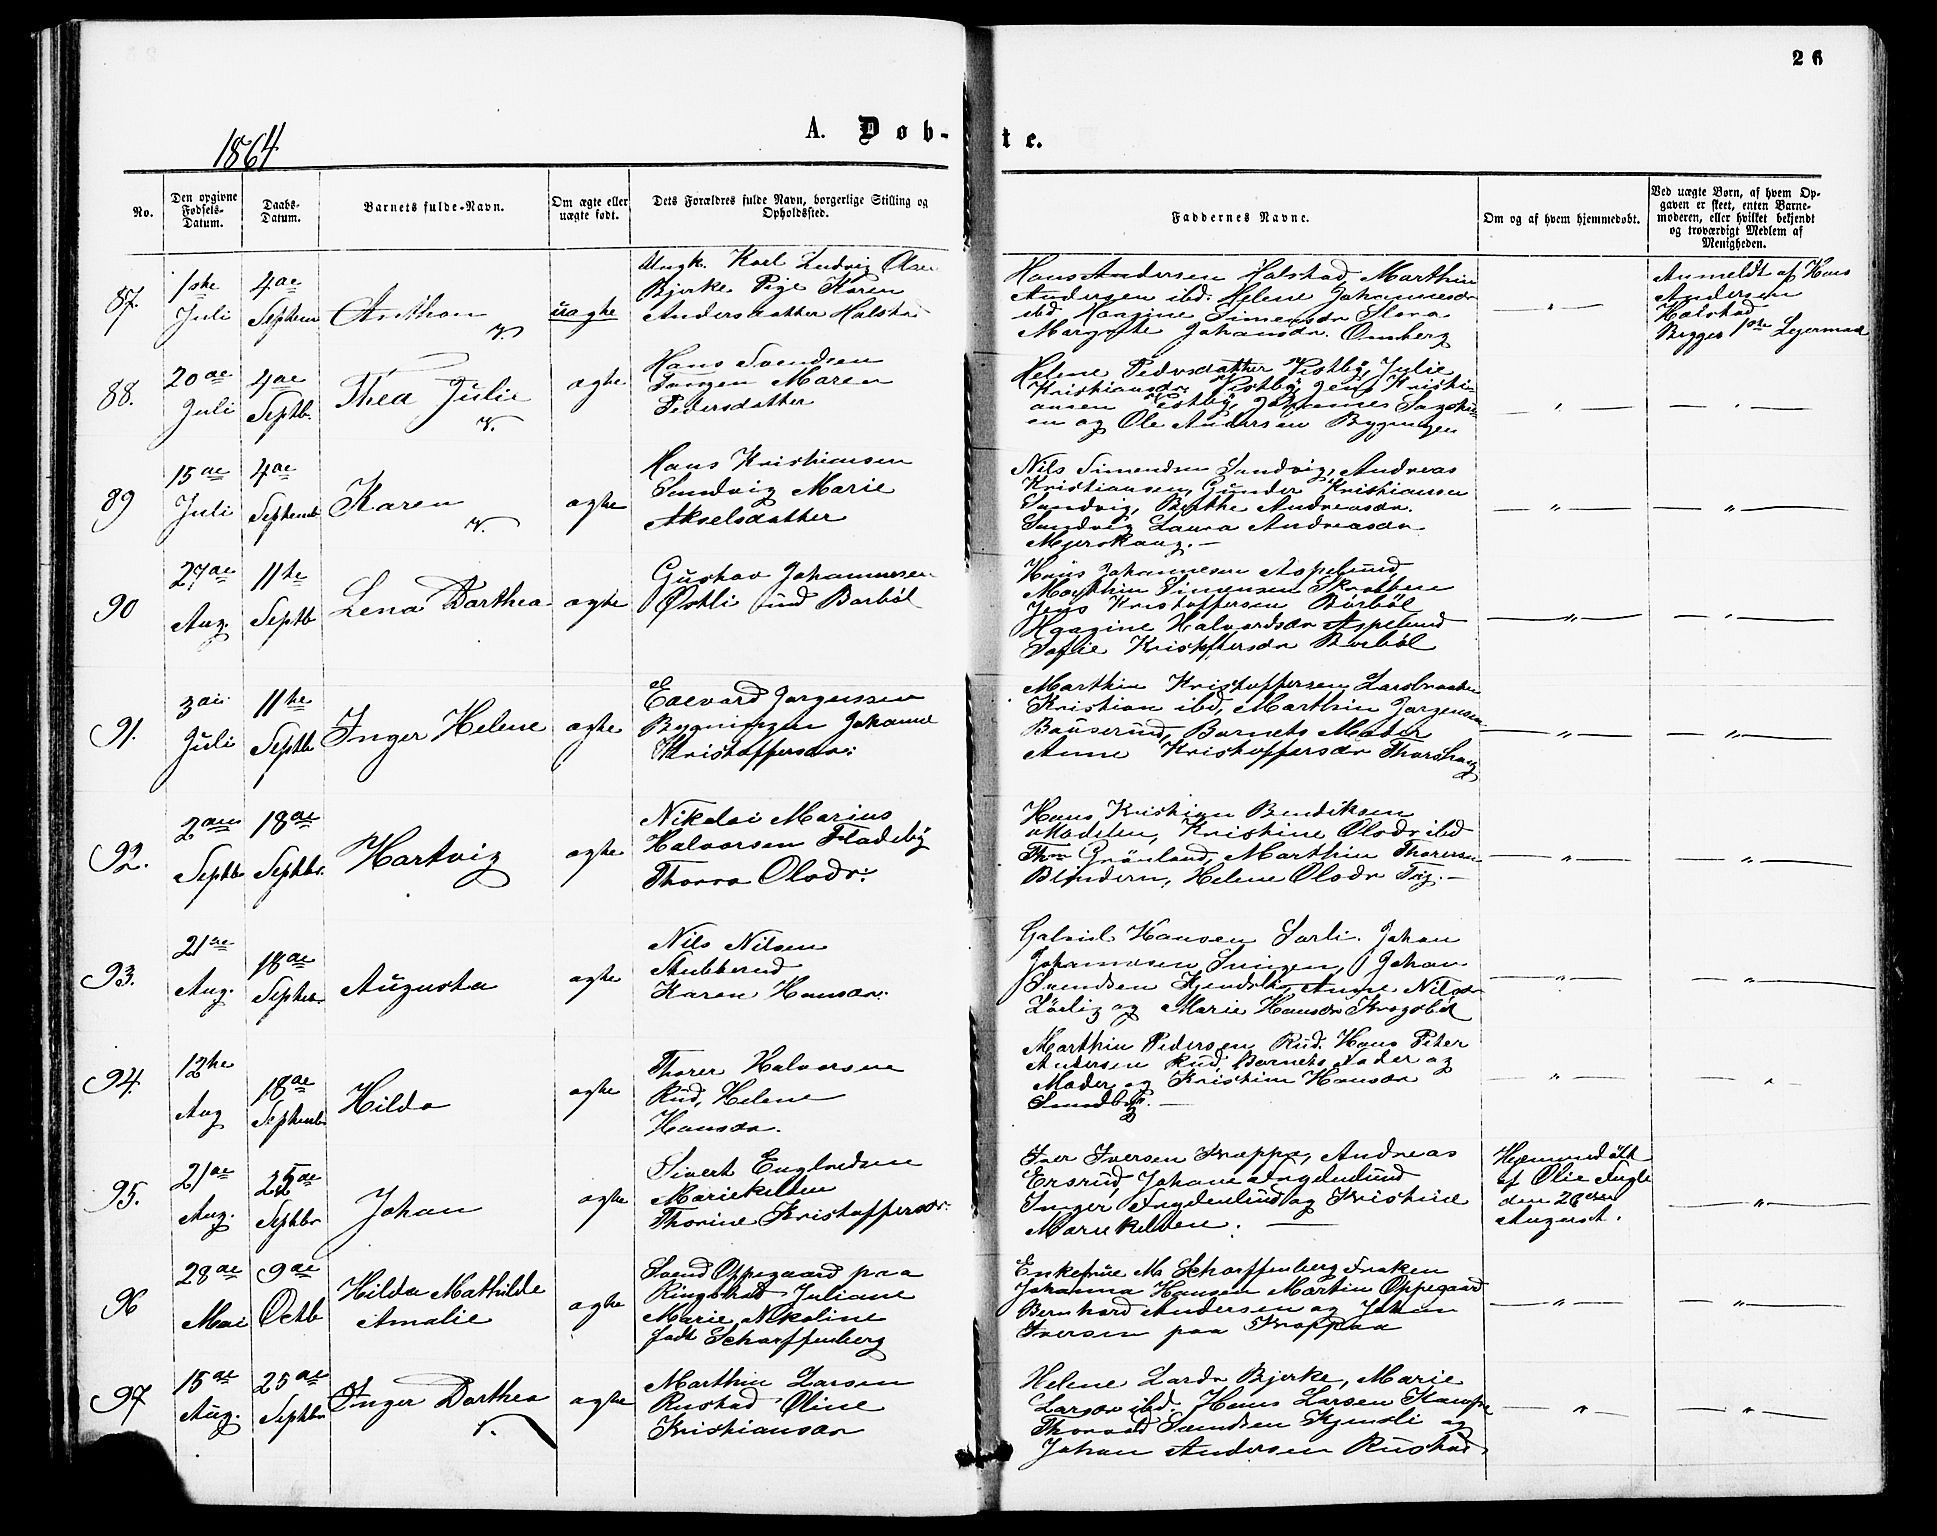 26
1864
A. Døb-
te.
No.
Den opgivne Fødsels-Datum.
Daabs-Datum.
Barnets fulde-Navn.
Om ægte eller uægte født.
Dets Forældres fulde Navn, borgerlige Stilling og Opholdssted.
Faddernes Navne.
Om og af hvem hjemmedøbt.
Ved uægte Børn, af hvem Opgaven er skeet, enten Barnemoderen, eller hvilket bekjendt og troværdigt Medlem af Menigheden.
87. 1ste Juli
4de Septem
Anthon
uægte
Ungk. Karl Ludvig Olsen
Bjerke Pige Karen
Andersdatter Halstad
Hans Andersen Halstad Marthin
Andersen ibd. Helene Johannesdr
ibd Simensdr
Margrethe Johansdr. Omberg
"
Anmeldt af Hans
Andersen
Halstad
Begges 1ste Lejermaal
88. 20de Juli
4de Septb.
Thea Julie
v.
ægte
Hans Svendsen
Maren
Pedersdatter
Helene Pedersdatter Vestby, Julie
Kristiansdr. Vestby, Jens Kristi-
ansen Vestby, Johannes
en og Ole Andersen Bygningen
"
"
89 15de Juli
4de Septemb
Karen
v.
ægte
Hans Kristiansen
Sundvig Marie
Akselsdatter
Nils Simensen Sundvig, Andreas
Kristiansen, Gunder Kristiansen
Sundvig, Berthe Andreasdr.
Sundvig Laura Andreasdr
Mjerskaug.
"
"
90 27de Aug.
11te Septb
Lena Dorthea
ægte
Gustav Johannessen
Østli und Borbøl
Hans Johannesen Aspelund,
Marthin Simensen
Jens Kristoffersen Borbøl
Halvordsdr Aspelund
Sofie Kristoffersdr Borbøl
"
"
91. 3die Juli
11te Septb
Inger Helene
ægte
Edevard Jørgensen
Bygningen Johanne
Kristoffersdr.
Marthin Kristoffersen Larsbraaten
Kristian ibd, Marthin Jørgensen
Bauserud, Barnets Moder
Anne Kristoffersdr Thorshaug
"
"
92. 2den Septb
18de Septbr.
Hartvig
ægte
Nikolai Marius
Halvorsen Fladeby
Thorra Olsdr.
Hans Kristian Bendiksen
Kristine Olsdr ibd
Grönland, Marthin Thoresen
Blindern, Helene Olsdr
"
"
93. 21de Aug.
18de Septbr
Augusta
ægte
Nils Nilsen
Stubberud
Karen Hansdr.
Gabriel Hansen Johan
Johannesen Johan
Svendsen Anne Nilsdr
og Marie Hansdr Krogsbøl
"
"
94. 12te Aug
18de Septembr
Hilda
ægte
Thorer Halvorsen
Rud, Helene
Hansdr.
Marthin Pedersen Rud. Hans Peter
Andersen Rud, Barnets Fader og
Moder og Kristine Hansdr
Sundby.
"
"
95. 21de Aug.
25de Septbr
Johan
ægte
Sivert Englredsen
Mariekilden
Thorine Kristoffersdr.
Iver Iversen Krappa, Andreas
Ersrud, Johane
Inger og Kristine
Mariekilden.
Hjemmedøbt
af Olie
den 26de
August.
"
96 28de Mai
9de Octb
Hilda Mathilde
Amalie
ægte
Svend Oppegaard paa
Ringstad Juliane
Marie Nikoline
født Scharffenberg
Enkefrue M Scharffenberg Frøken
Johanna Hansen Martin Oppegaard
Bernhard Andersen og Johan
Iversen paa Krappaa
"
"
97 15de Aug.
25de Septbr
Inger Dorthea
v.
ægte
Marthin Larsen
Rustad Oline
Kristiansdr
Helene Larsdr Bjerke, Marie
Larsdr ibd. Hans Larsen
Thorvald Svendsen og
Johan Andersen Rustad
"
"